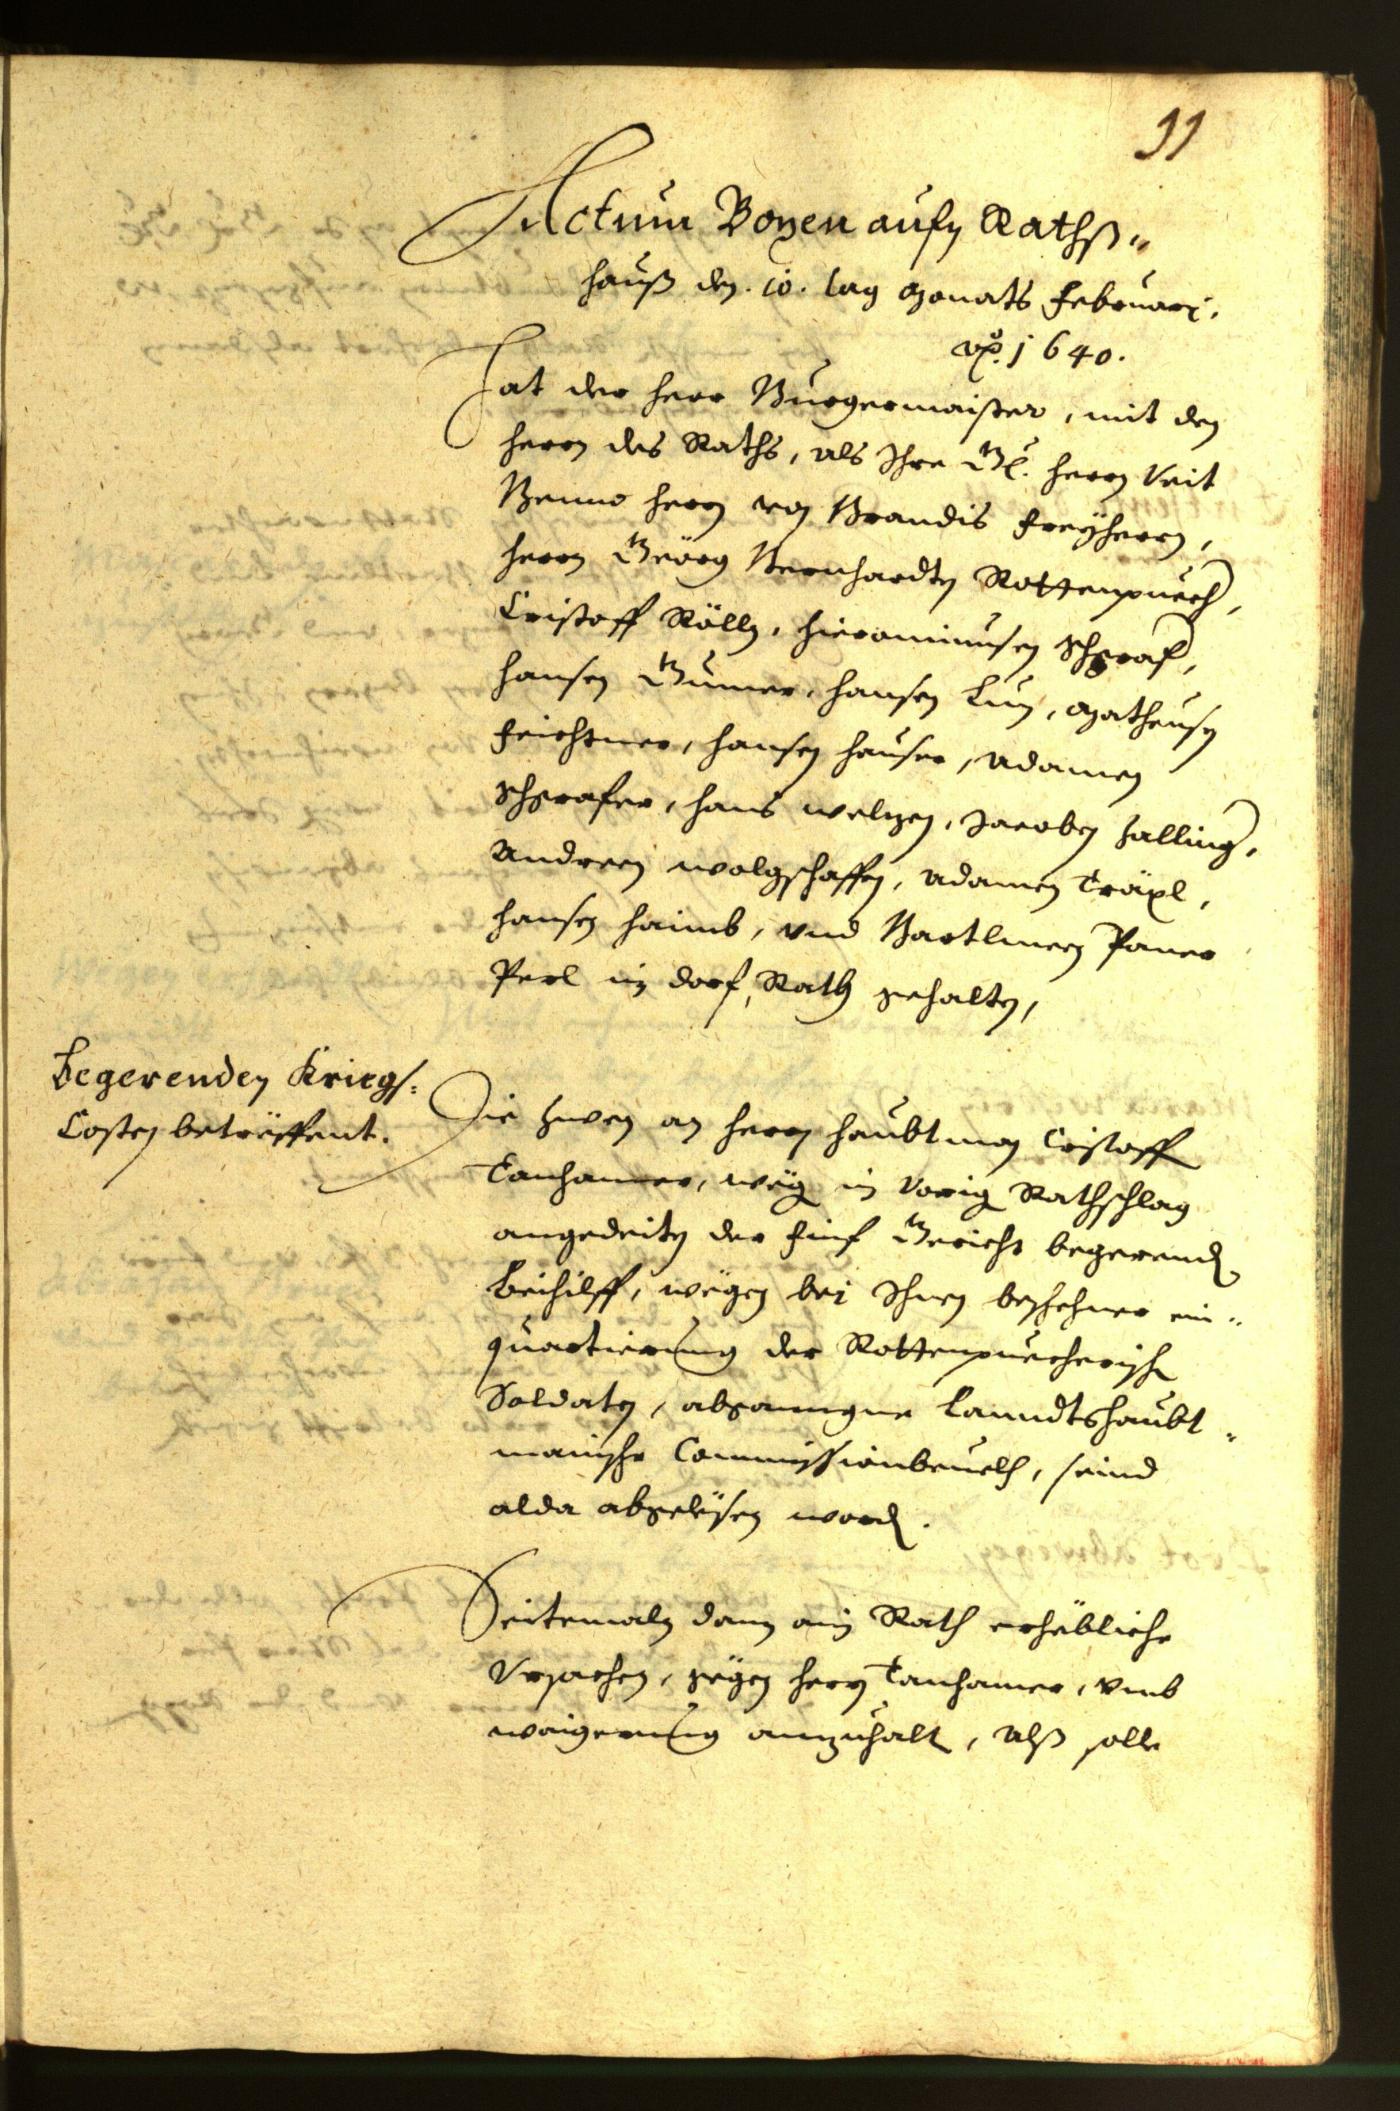 11
Actum Bozen aufm Rathß„
hauß den .10. tag Monats Februarj.
Ao. 1640.
Hat der herr Burgermaister, mit den
herrn des Raths, als Ihre Gn. herrn Veit
Benno herrn von Brandis Freyherrn,
herrn Geörg Bernhardten Rottenpuech,
Cristoff Rölln, Hieronimusen Schgraf,
Hansen Gumer, Hansen Lun, Matheusen
Feichtner, Hansen Hauser, Adamen
Schgrafer, Hans Welzen, Jacoben Zalling,
Andreen Wolgschaffen, Adamen Träxl,
Hansen Haimb, vnd Bartlmeen Paner
Perl im dorf, Rath gehalten,
Begerenden Kriegs:
Costen betreffent.
Die zwen an herrn Haubtman Cristoff
Tanhamer, weg in vorig Rathschlag
angedeiten der Finf Gericht begerenden
Beihilff, wegen bei Ihnen beschehner ein„
quartierung der Rottenpuecherische
Soldaten, abgangne Lanndtshaubt„
manische Commissionbeuelh, seind
alda abgelesen worden.
Seitemaln dann ain Rath erhebliche
Vrsachen, gegen herrn Tanhamer, vmb
waigerung anzuhalten, Alß solle